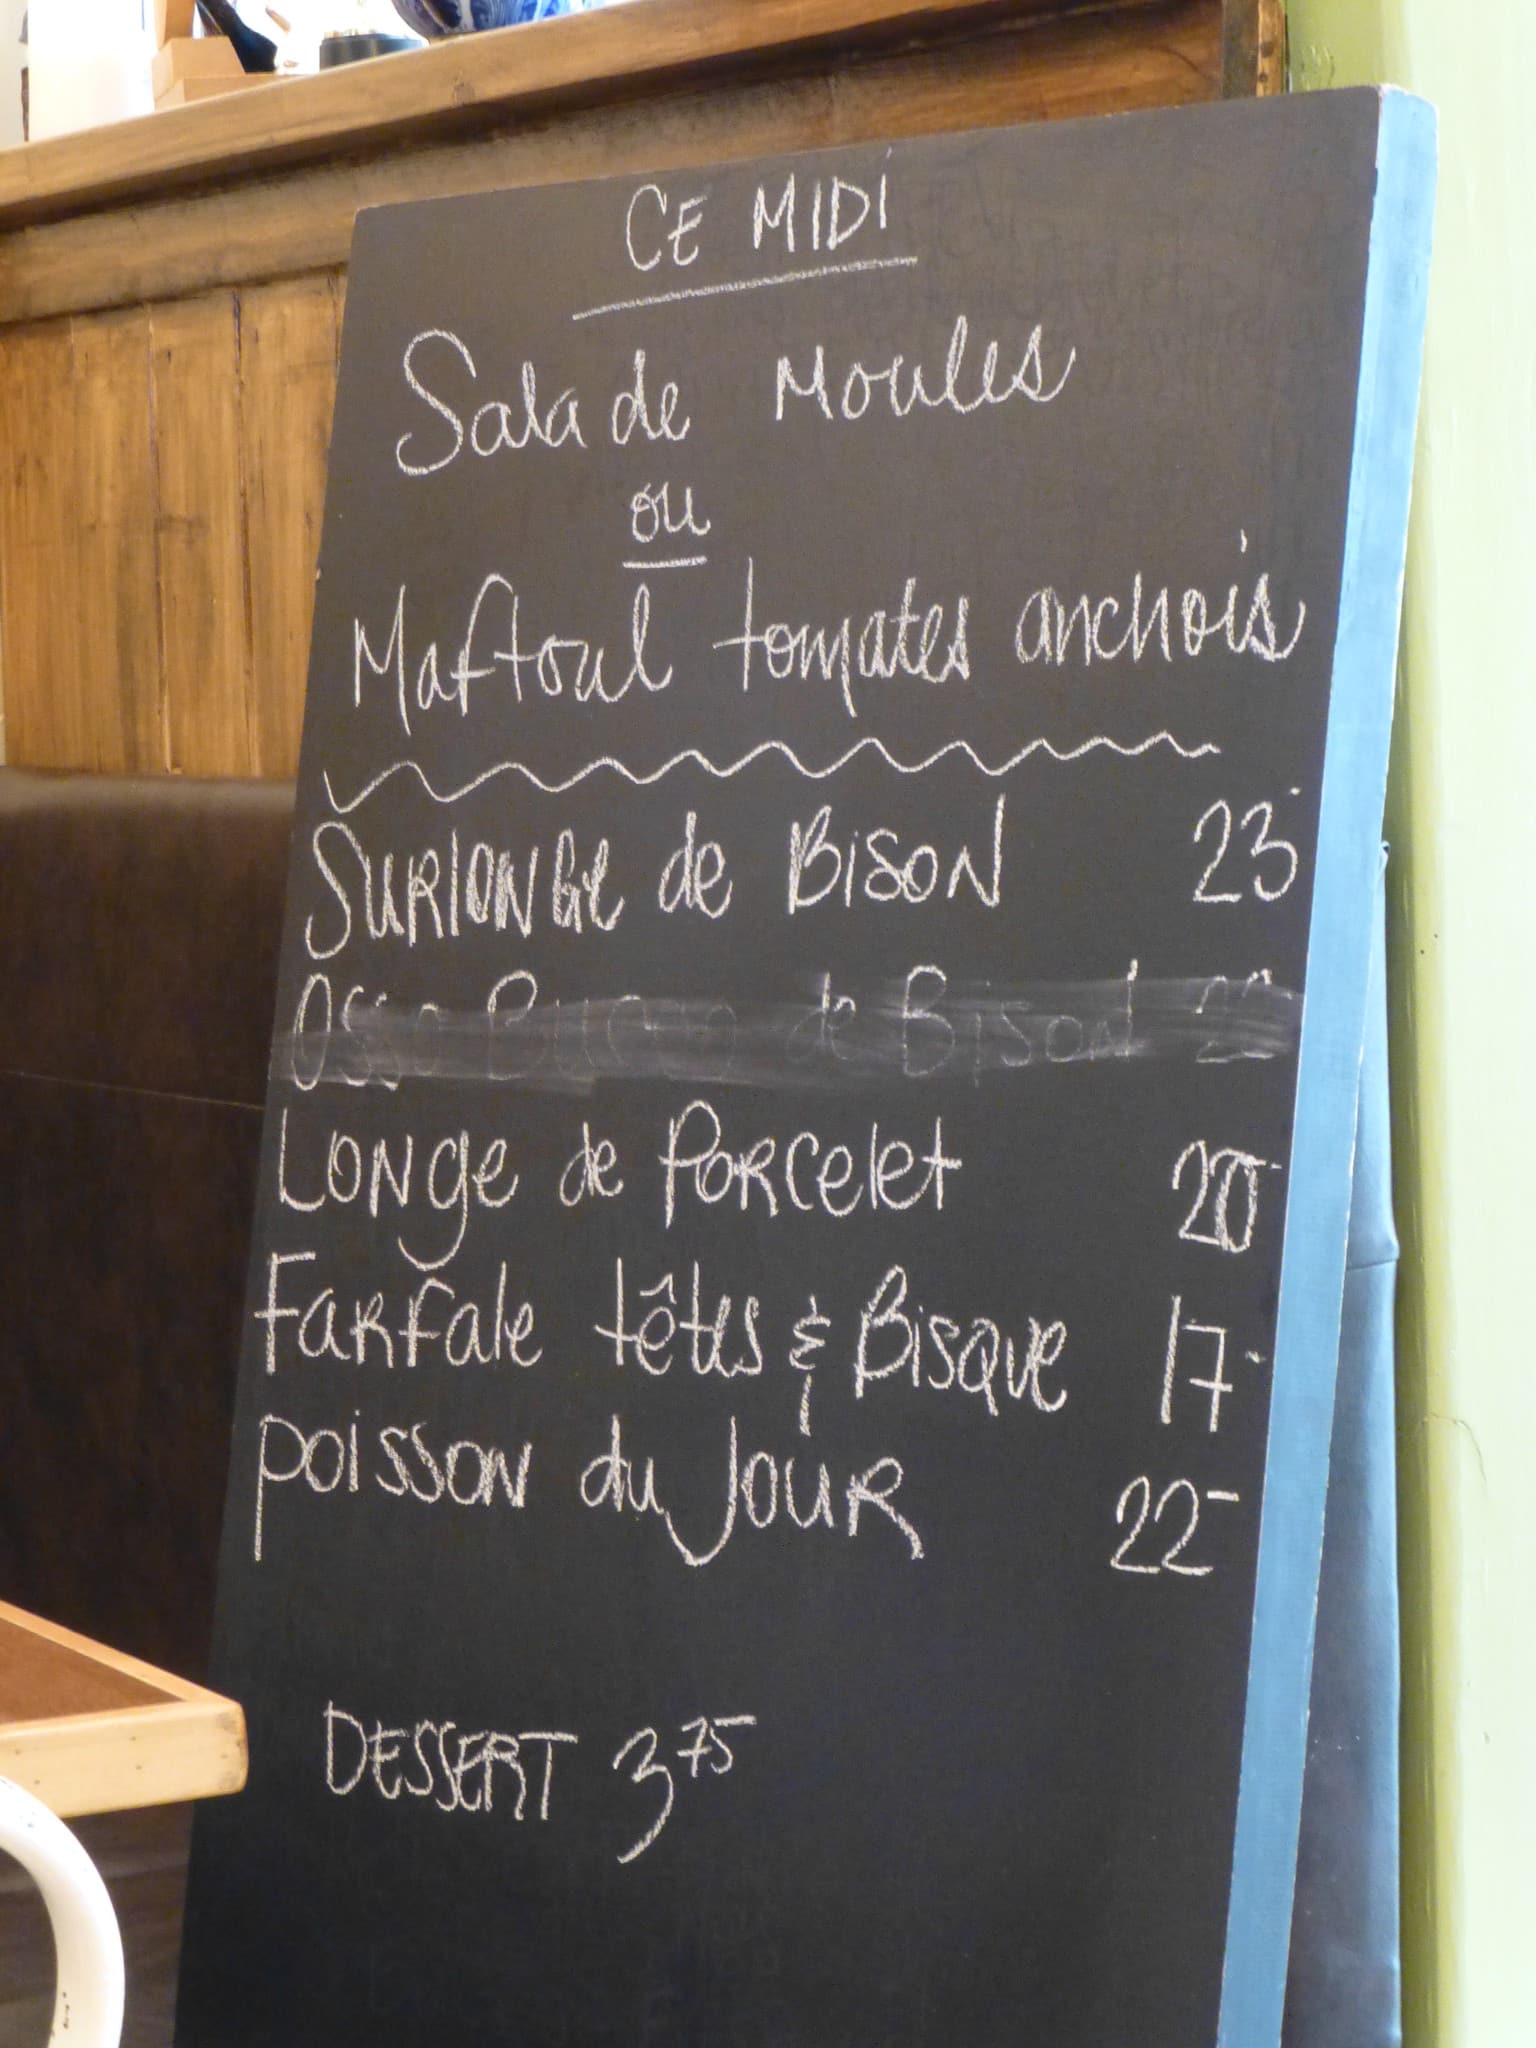 CE MIDI
Salade Moules
ou
Maftoul tomates anchois
Surlonge de Bison 23
Osso Bucco de Bison
Longe de Porcelet 20
Farfale têtes & Bisque 17
Poisson du Jour 22
DESSERT 3 75